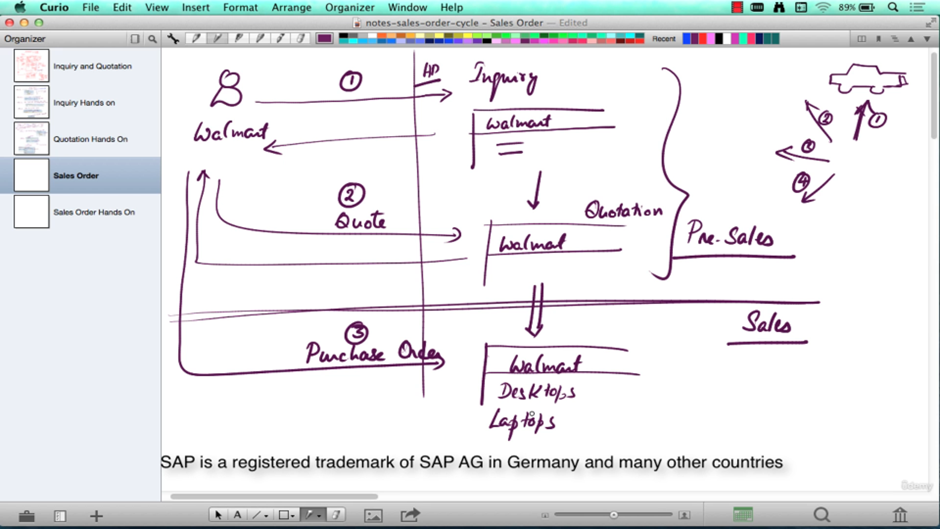 Curio File Edit View Insert Format Arrange Organizer Window Help 89%
notes-sales-order-cycle – Sales Order — Edited
Organizer
Recent
Inquiry and Quotation
Inquiry Hands on
Quotation Hands On
Sales Order
Sales Order Hands On
1
HP
Inquiry
Walmart
Walmart
1
2
3
4
2
Quote
Quotation
Walmat
Pre-Sales
Sales
3
Purchase Order
Walmart
Desktops
Laptops
SAP is a registered trademark of SAP AG in Germany and many other countries
Udemy
A